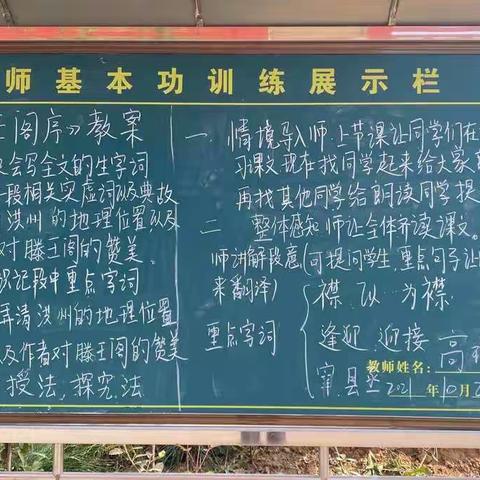 师基本功训练展示栏
王阁序》教案
会写全文的生字词
段相关实虚词以及典故
洪州的地理位置以及
对滕王阁的赞美
识记段中重点字词
弄清洪州的地理位置
及作者对滕王阁的赞美
授法,探究法
一、情境导入师:上节课让同学们在
习课文,现在找同学起来给大家
再找其他同学给朗读同学提
二 整体感知 师让全体齐读课文。
师讲解段意(可提问学生,重点句子让
来翻译)
重点字词
襟:以…为襟
逢迎:迎接
教师姓名:高
2021年10月2